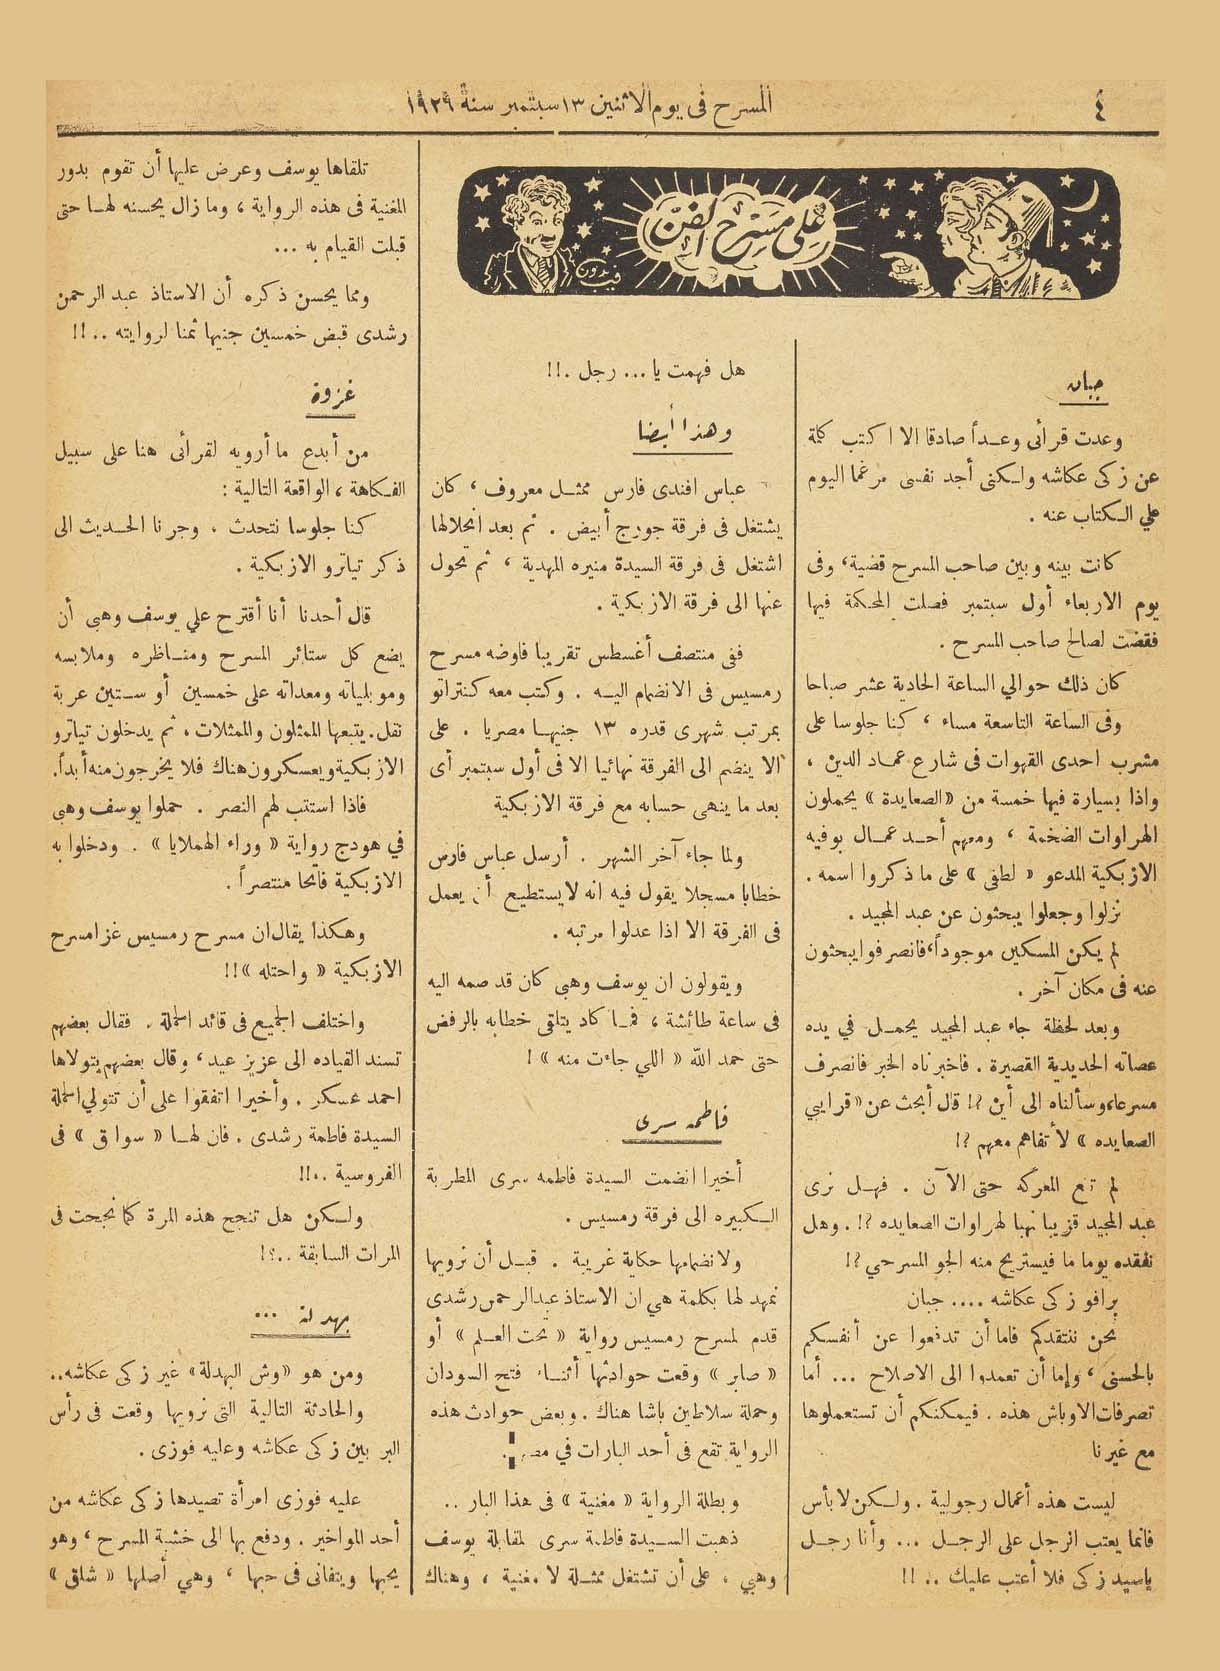 ٤
المسرح في يوم الاثنين ١٣ سبتمبر سنة ١٩٢٦
على مسرح الفن
جبان
وعدت قرائى وعـداً صادقا الا اكتب كلمة
عن زكى عكاشه ولـكنى أجد نفسى مرغما اليوم
علي الـكتاب عنه .
كانت بينه وبين صاحب المسرح قضية، وفى
يوم الاربعاء أول سبتمبر فصلت المحكمة فيها
فقضت لصالح صاحب المسرح .
كان ذلك حوالي الساعة الحادية عشر صباحا
وفى الساعة التاسعة مساء ، كنا جلوسا على
مشرب احدى القهوات فى شارع عماد الدين ،
واذا بسيارة فيها خمسة من «الصعايدة» يحملون
الهراوات الضخمة ، ومعهم أحـد عمـال بوفيه
الازبكية المدعو « لطفى » على ما ذكروا اسمه .
نزلوا وجعلوا يبحثون عن عبد المجيد .
لم يكن المسكين موجوداً، فانصرفوا يبحثون
عنه فى مكان آخر .
وبعد لحظة جاء عبد المجيد يحمـل في يده
عصاته الحديدية القصيرة . فاخبرناه الخبر فانصرف
مسرعا، وسألناه الى أين ؟! قال أبحث عن «قرايبي
الصعايده » لأتفاهم معهم ؟!
لم تقع المعركه حتى الآن . فهـل نرى
عبد المجيد قريبا نهبا لهراوات الصعايده ؟! . وهل
نفقده يوما ما فيستريح منه الجو المسرحي ؟!
برافو زكى عكاشه .... جبان
نحن ننتقدكم فاما أن تدفعوا عن أنفسكم
بالحسنى ، وإما أن تعمدوا الى الاصلاح ... أما
تصرفات الاوباش هذه . فيمكنكم أن تستعملوها
مع غيرنا
ليست هذه أعمال رجولية . ولـكن لا بأس
فانما يعتب الرجل على الرجـل ... وأنا رجـل
ياسيد زكى فلا أعتب عليك .. !!
هل فهمت يا... رجل .!!
وهذا أيضا
عباس افندى فارس ممثـل معروف ، كان
يشتغل فى فرقة جورج أبيض . ثم بعد انحلالها
اشتغل فى فرقة السيدة منيره المهدية ، ثم تحول
عنها الى فرقة الازبكية .
ففى منتصف أغسطس تقريبا فاوضه مسرح
رمسيس فى الانضمام اليـه . وكتب معه كنتراتو
بمرتب شهرى قدره ١٣ جنيهـا مصريا . على
الا ينضم الى الفرقة نهائيا الا فى أول سبتمبر أى
بعد ما ينهى حسابه مع فرقة الازبكية
ولما جاء آخر الشهر . أرسل عباس فارس
خطابا مسجلا يقول فيه انه لايستطيع أن يعمل
فى الفرقة الا اذا عدلوا مرتبه .
ويقولون ان يوسف وهبى كان قد ضمه اليه
فى ساعة طائشة ، فمـا كاد يتلقى خطابه بالرفض
حتى حمد الله « اللي جاءت منه » !
فاطمه سرى
أخيرا انضمت السيدة فاطمه سرى المطربة
الـكبيره الى فرقة رمسيس .
ولانضمامها حكاية غريبة . قبـل أن نرويها
نمهد لها بكلمة هي ان الاستاذ عبدالرحمن رشدى
قدم لمسرح رمسيس رواية « تحت العـلم » أو
« صابر » وقعت حوادثها أثنـاء فتح السودان
وحملة سلاطين باشا هناك . وبعض حوادث هذه
الرواية تقع فى أحد البارات في مصر .
وبطلة الرواية « مغنية » فى هذا البار ..
ذهبت السـيدة فاطمة سرى لمقابلة يوسف
وهبي ، على أن تشتغل ممثـلة لا مغنية ، وهناك
تلقاها يوسف وعرض عليها أن تقوم بدور
المغنية فى هذه الرواية ، وما زال يحسنه لهـا حتى
قبلت القيام به ...
ومما يحسن ذكره أن الاستاذ عبد الرحمن
رشدى قبض خمسين جنيها ثمنا لروايته ..!!
غزوة
من أبدع ما أرويه لقرائى هنا على سبيل
الفـكاهة ، الواقعة التالية :
كنا جلوسا نتحدث . وجرنا الحـديث الى
ذكر تياترو الازبكية .
قال أحدنا أنا أقترح علي يوسف وهبى أن
يضع كل ستائر المسرح ومنـاظره وملابسه
وموبلياته ومعداته على خمسين أو سـتين عربة
نقل . يتبعها الممثلون والممثلات ، ثم يدخلون تياترو
الازبكية ويعسكرون هناك فلا يخرجون منه أبداً.
فاذا استتب لهم النصر . حملوا يوسف وهبى
في هودج رواية « وراء الهملايا » . ودخلوا به
الازبكية فاتحا منتصراً .
وهكذا يقال ان مسرح رمسيس غزا مسرح
الازبكية « واحتله »!!
واختلف الجميع فى قائد الحملة . فقال بعضهم
تسند القياده الى عزيز عيد ، وقال بعضهم يتولاها
احمد عسكر . وأخيرا اتفقوا على أن تتولي الحملة
السيدة فاطمة رشدى . فان لهـا « سوابق » فى
الفروسية ..!!
ولـكن هل تنجح هذه المرة كما نجحت فى
المرات السابقة ..؟!
بهدلة ...
ومن هو «وش البهدلة» غير زكى عكاشه..
والحادثة التالية التى نرويها وقعت فى رأس
البر بين زكى عكاشه وعليه فوزى .
عليه فوزى امرأة تصيدها زكى عكاشه من
أحد المواخير . ودفع بها الى خشبة المسرح ، وهو
يحبها ويتفانى فى حبها ، وهي أصلها « شلقى »